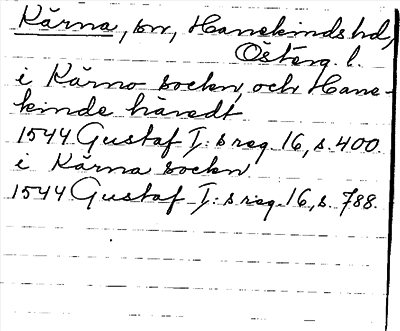 Kärna, sn, Hanekinds hd,
Österg. l.
i Kärno sockn, och Hane-
kinde häredt
1544 Gustaf I:s reg. 16, s. 400.
i Kärna sockn
1544 Gustaf I:s reg. 16, s. 788.